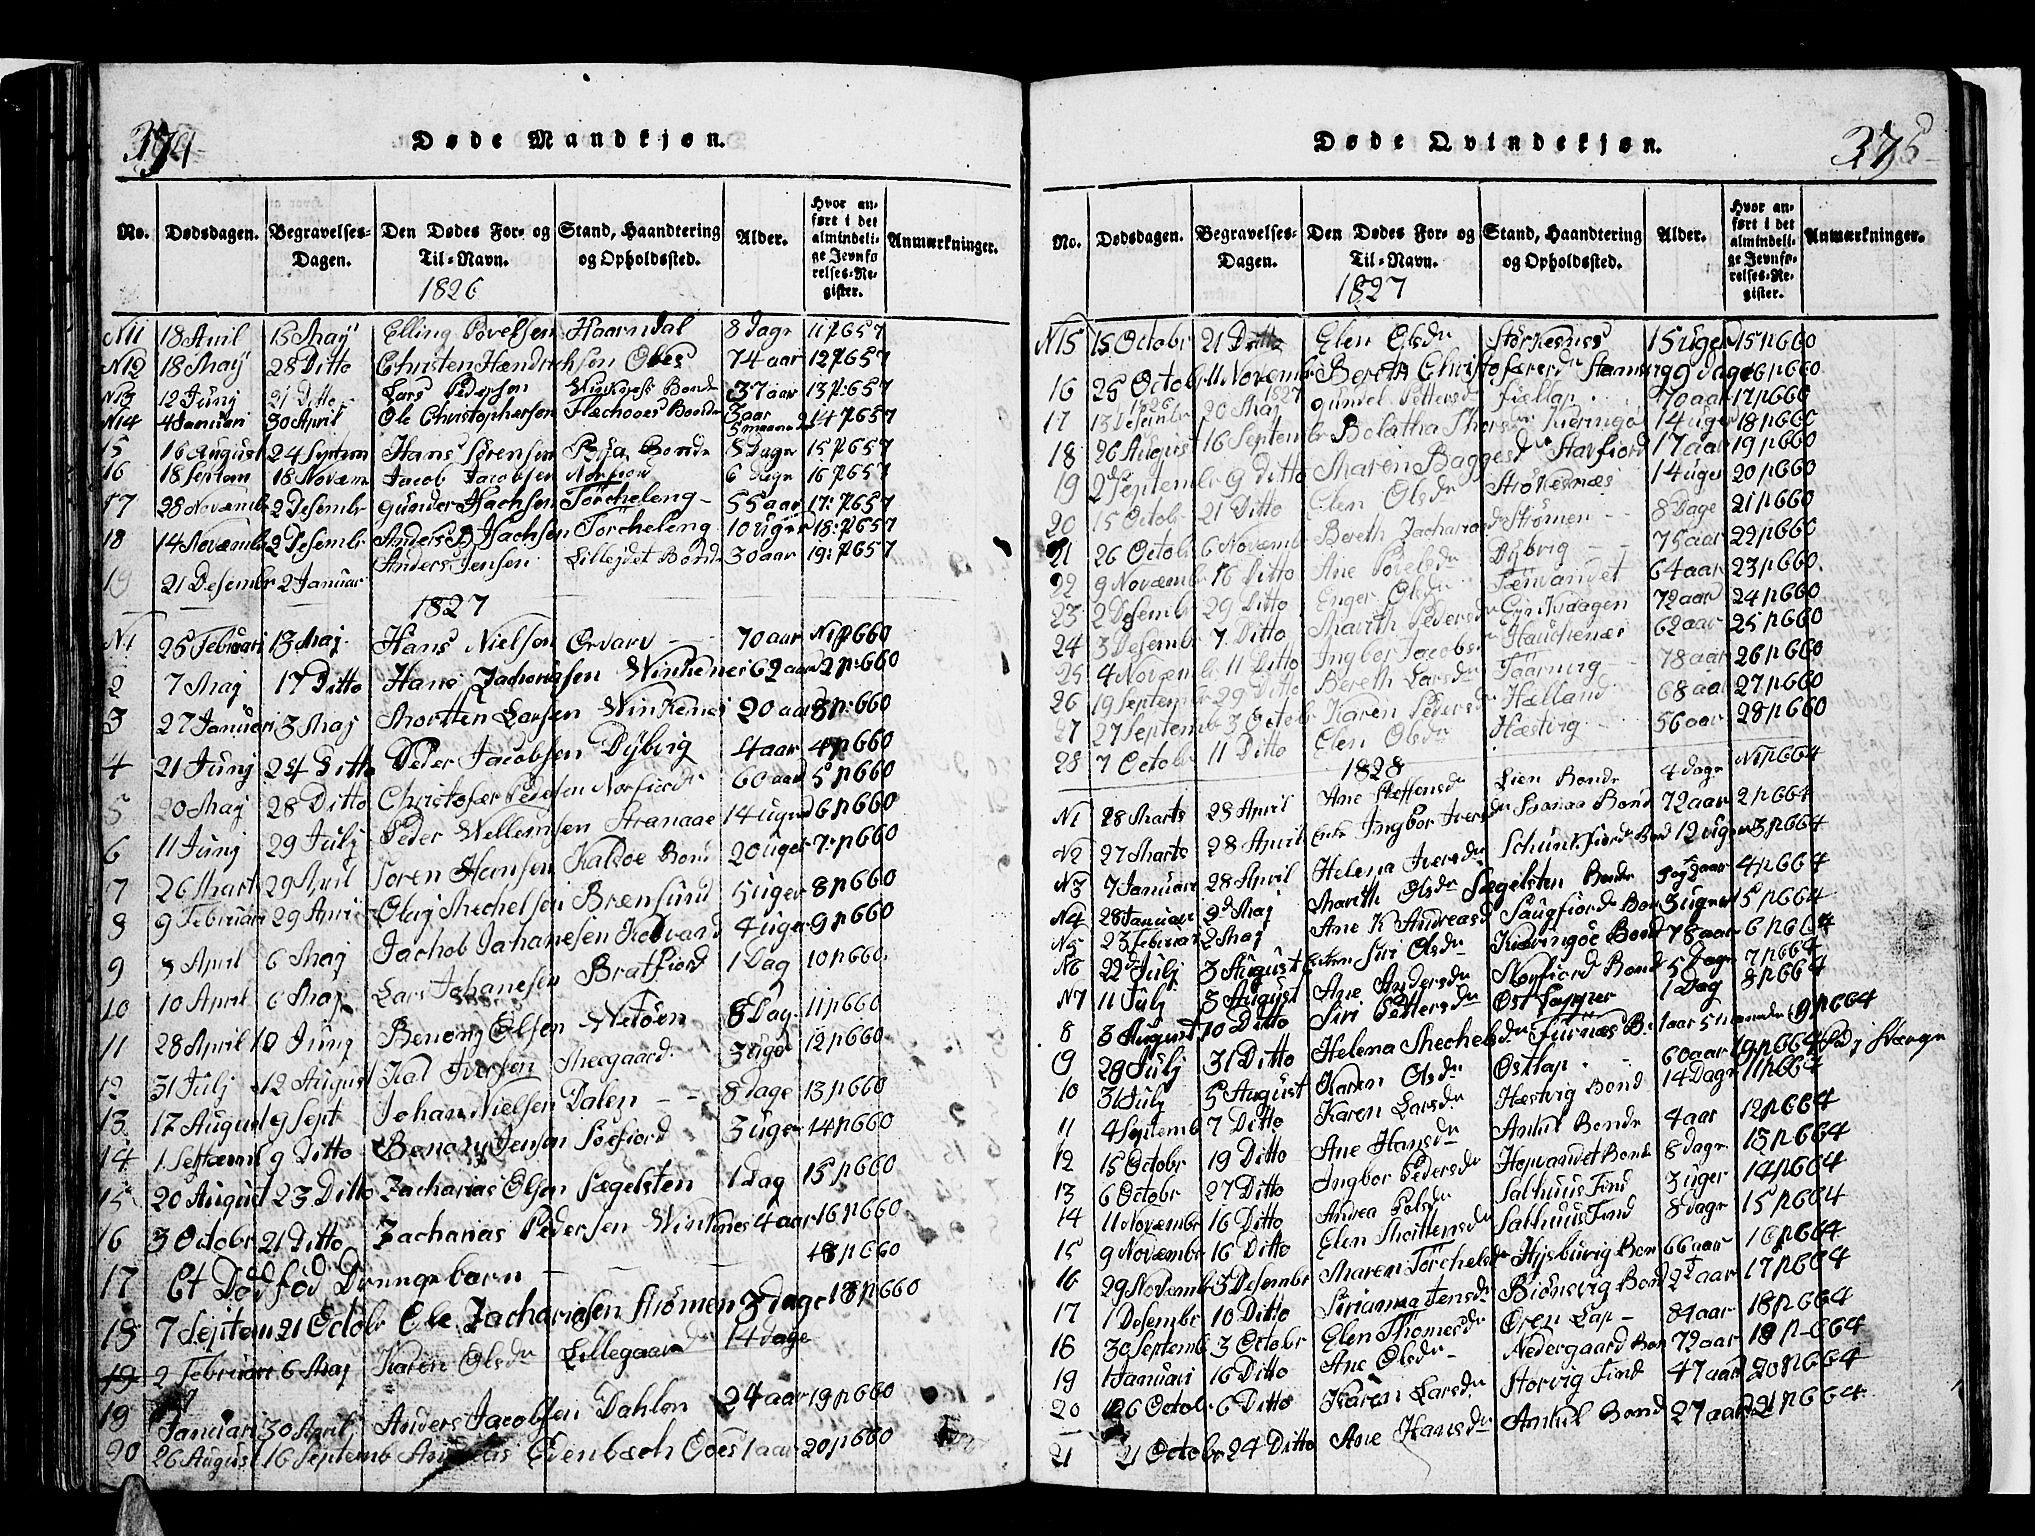 374
Døde Mandkjøn.
No. Dødsdagen. Begravelses-Dagen. Den Dødes For- og Til-Navn. Stand, Haandtering og Opholdssted. Alder. Hvor anført i det almindelige Jevnførelses-Register. Anmærkninger.
1826
N11 18 April 13 Maij Elling Povelsen Haarndal 8 Dage 11 p 657
N12 18 Maij 28 Ditto Christen Hendrichsen Obes 74 aar 12 p 657
N13 12 Junij 21 Ditto Lars Pedersen Winkenes Bonde 37 aar 13 p 657
N14 4 Januari 30 April Ole Christophersen Bonde 3 aar 5 maaneder 14 p 657
15 16 August 24 Septem Hans Sørensen Bonde 8 Dage 15 p 657
16 18 Septem 18 Novem Jacob Jacobsen Norfiord 6 Uger 16 p 657
17 28 Novembr 2 Desembr Gunder Isachsen Torcheleng 55 aar 17 p 657
18 14 Novembr 2 Desembr Anders Isachsen Torcheleng 10 Uger 18 p 657
19 21 Desembr 2 Januar Anders Jensen Lillejdet Bonde 30 aar 19 p 657
1827
N1 25 Februari 13 Maj Hans Nielsen Ørvarv 70 aar N1 p 660
2 7 Maj 17 Ditto Hans Zachariasen Winkenes 62 aar 2 p 660
3 27 Januari 3 Maj Morten Larsen Winkenes 20 aar 3 p 660
4 21 Junij 24 Ditto Peder Jacobsen Dybvig 4 aar 4 p 660
5 20 Maj 28 Ditto Christofer Pedersen Norfiord 60 aar 5 p 660
6 11 Junj 29 Julj Peder Wellemsen Stranaae 14 uger 6 p 660
7 26 Marts 29 April Søren Hansen Kaldøe Bond 20 uger 7 p 660
8 9 Februari 29 April Olaj Mechelsen Brensund 5 uger 8 p 660
9 April 6 Maj Jachob Johanesen Kobvand 4 uger 9 p 660
10 10 April 6 Maj Lars Johanesen Bratfiord 1 Dag 10 p 660
11 28 April 10 Junj Benonj Olsen Netøen 8 Dag 11 p 660
12 31 Julj 12 August Kal Iversen Moegaard 3 uger 12 p 660
13 17 August 9 Sept Johan Nielsen Dalen 8 dage 13 p 660
14 1 Septemb 9 Ditto Benonj Jensen Soefiord 3 uger 14 p 660
15 20 August 23 Ditto Zacharias Olsen Sægelsten 1 Dag 15 p 660
16 3 Octobr 21 Ditto Zacharias Pedersen Winkenes 4 aar 16 p 660
17 Et Dødfød Drengebarn 18 p 660
18 7 Septem 21 Octobr Ole Zachariasen Strømen 3 dage 18 p 660
19 2 Februari 6 Maj Karen Olsdr Lillegaard 14 dage
19 Januari 30 April Anders Jacobsen Dahlen 24 aar 19 p 660
20 26 August 16 Septemb Edenbech Oves 1 aar 20 p 660
375
Døde Qvindekjøn.
No. Dødsdagen. Begravelses-Dagen. Den Dødes For- og Til-Navn. Stand, Haandtering og Opholdssted. Alder. Hvor anført i det almindelige Jevnførelses-Register. Anmærkninger.
1827
N15 15 Octobr 21 Ditto Elen Olsdr Størkesnes 15 uger 15 p 660
16 25 Octobr 11 Novembr Bereth Christofersdr 9 dage 16 p 660
17 13 Desembr 1826 20 Maj 1827 Gundel Pettersdr Fiellap 70 aar 17 p 660
18 26 August 16 Septembr Bolatha Kieringø 14 uger 18 p 660
19 2 Septembr 9 Ditto Maren Baggesdr Starfiord 17 aar 19 p 660
20 15 Octobr 21 Ditto Elen Olsdr Strøkenes 14 uger 20 p 660
21 26 Octobr 6 Novembr Bereth Zachariasdr Strømen 8 Dage 21 p 660
22 9 Novembr 16 Ditto Ane Povelsdr Dybvig 75 aar 22 p 660
23 2 Desembr 29 Ditto Enger Olsdr 64 aar 23 p 660
24 3 Desembr 7 Ditto Marith Pedersdr 72 aar 24 p 660
25 4 Novembr 11 Ditto Ingbor Jacobsdr Hauchenæs 62 aar 25 p 660
26 19 Septembr 29 Ditto Bereth Larsdr Taarnvig 78 aar 26 p 660
27 27 Septembr 3 Octobr Karen Pedersdr Hælland 68 aar 27 p 660
28 7 Octobr 11 Ditto Elen Olsdr Hæstvig 56 aar 28 p 660
1828
N1 28 Marts 28 April Ane Steffensdr Lien Bonde 4 dage N1 p 664
N2 27 Marts 28 April Enke Ingbor Iversdr Bond 72 aar 2 p 664
N3 7 Januari 28 April Helena Iversdr 12 uger 3 p 664
N4 28 Januari 3d Maj Marith Olsdr Sægelsten Bonde 4 p 664
N5 23 Februari 2 Maj Ane K Andreasd Saugfiord Bon 3 uger 5 p 664
N6 22d Julj 3 August Enken Siri Olsdr Kieringøe Bond 78 aar 6 p 664
N7 11 Julj 3 August Ane Andersdr Norfiord Bond 5 Dage 7 p 664
8 3 August 10 Ditto Siri Pettersdr Øst Lapper 1 Dag 8 p 664
9 28 Julj 31 Ditto Helena Mechelsdr Furnæs B. 1 aar 5 maaneder 9 p 664
10 31 Julj 5 August Karen Olsdr Østlap 60 aar 10 p 664 Død j Svenge
11 4 Septembr 7 Ditto Karen Larsdr Hæstvig Bond 14 Dage 11 p 664
12 15 Octobr 19 Ditto Ane Hansdr Ankel Bonde 4 aar 12 p 664
13 6 Octobr 27 Ditto Ingbor Pedersdr Hopvandet Bonde 8 dage 13 p 664
14 11 Novembr 16 Ditto Andrea Polsdr Salhuus Find 3 uger 14 p 664
15 9 Novembr 16 Ditto Elen Mortensdr Salhuus Find 8 dage 15 p 664
16 29 Novemb 3 Desembr Maren Torchelsdr Bon 66 aar 16 p 664
17 1 Desembr 10 Ditto Sirianna Jensdr Biønsvig Bond 2 aar 17 p 664
18 30 Septemb 3 Octobr Elen Thomesdr Øren Lap 84 aar 18 p 664
19 1 Januari 16 Ditto Ane Olsdr Nedergaard Bon 72 aar 19 p 664
20 26 Octobr 6 Ditto Karen Larsdr Storvig Find 47 aar 20 p 664
21 21 Octobr 24 Ditto Ane Hansdr Ankel Bond 27 aar 21 p 664